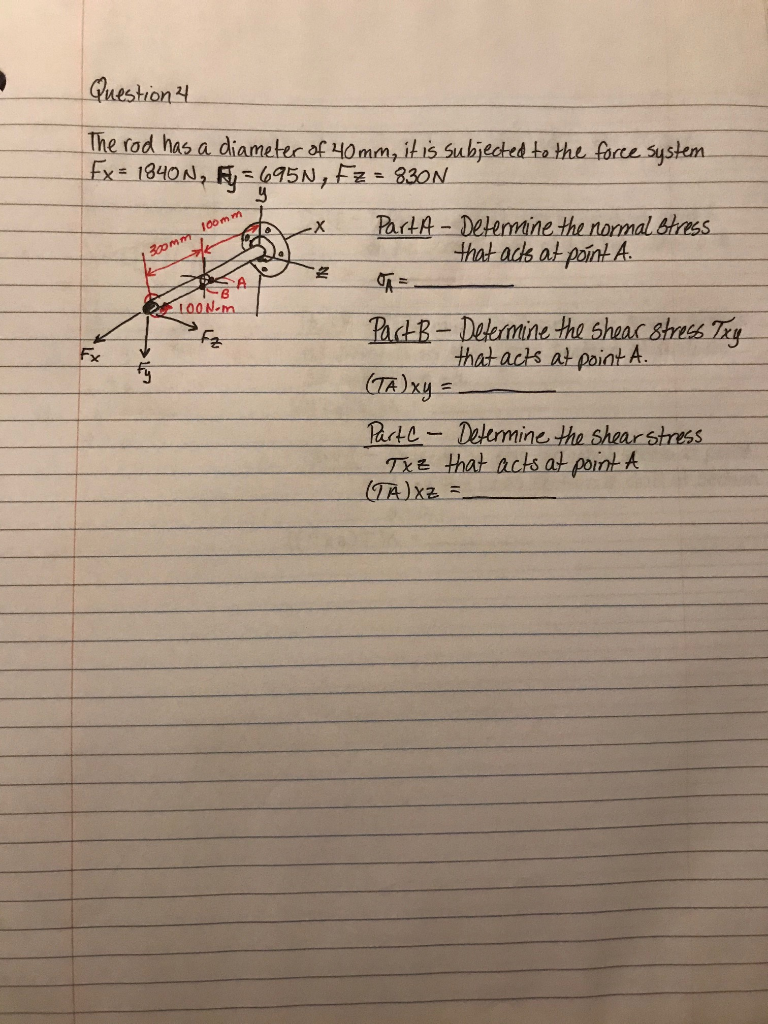 Question 4
The rod has a diameter of 40mm, it is subjected to the force system
Fx = 1840N, Fy = 695N, Fz = 830N
y
100mm
300mm
x
z
A
B
100N-m
Fx
Fy
Fz
Part A - Determine the normal stress
that acts at point A.
σA =
Part B - Determine the shear stress Txy
that acts at point A.
(TA)xy =
Part C - Determine the shear stress
Txz that acts at point A
(TA)xz =